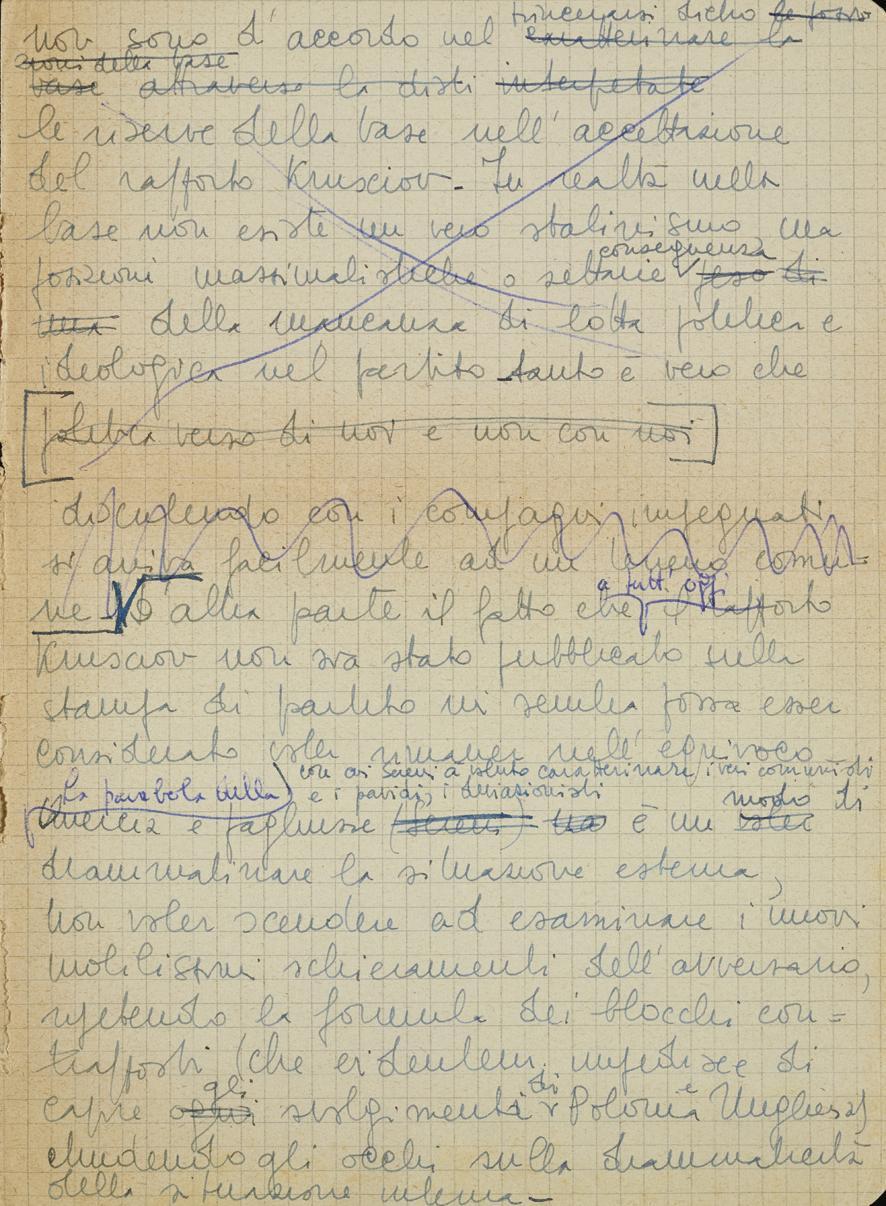 trincerarsi dietro le posi
non sono d'accordo nel caratterizzare la
zioni della base
base attraverso la disti interpretate
le riserve della base nell'accettazione
del rapporto Krusciov - In realtà nella
base non esiste un vero stalinismo, ma
conseguenza
posizioni massimalistiche o settarie peso di
una della mancanza di lotta politica e
ideologica nel partito tanto è vero che
[politica verso di noi e non con noi]
discutendo con i compagni impegnati,
si arriva facilmente ad un terreno comu=
a tutt'oggi
ne D'altra parte il fatto che il rapporto
Krusciov non sia stato pubblicato sulla
stampa di partito mi sembra possa esser
considerato voler rimaner nell'equivoco
con cui Sereni à voluto caratterizzare i veri comunisti
La parabola della) e i pavidi, i deviazionisti
quercia e pagliuzze (sereni) è un modo di
voler
drammatizzare la situazione esterna,
non voler scendere ad esaminare i nuovi
mobilissimi schieramenti dell'avversario,
ripetendo la formula dei blocchi con=
trapposti (che evidentem. impedisce di
gli di e
capire ogni svolgimenti Polonia Ungheria)
chiudendo gli occhi sulla drammaticità
della situazione interna -